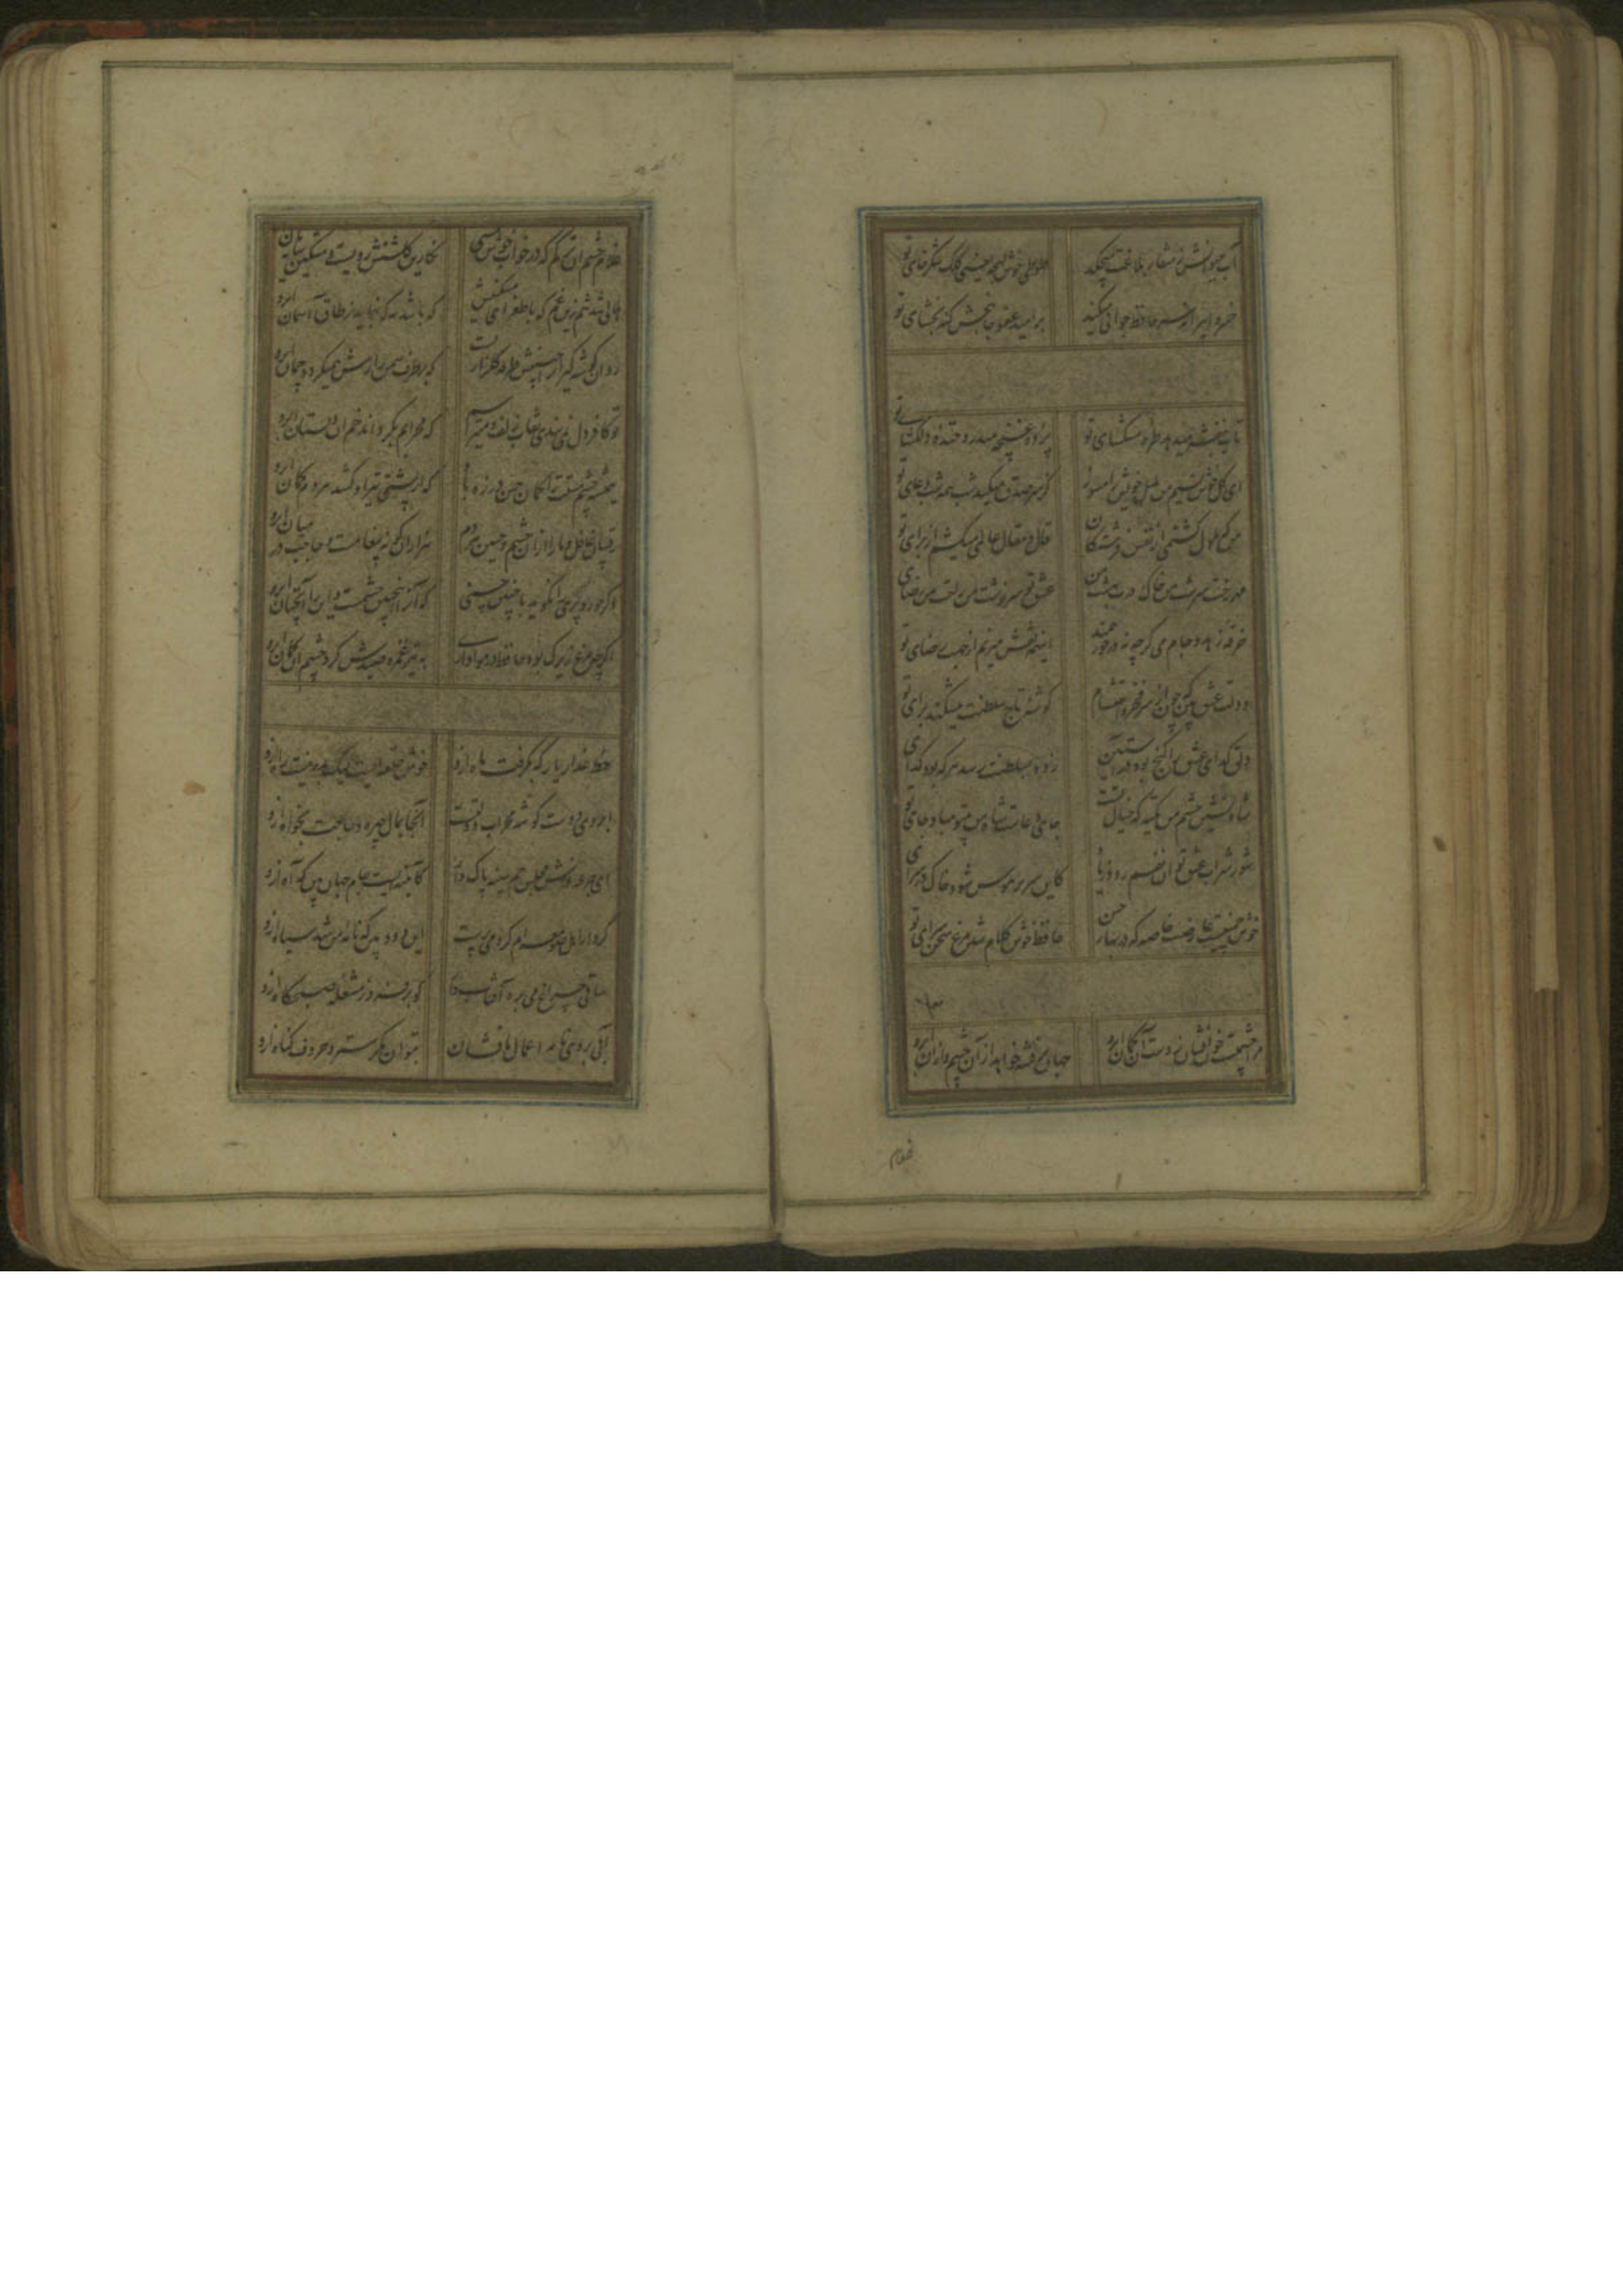 آب حیوانش ز منقار بلاغت میچکد طوطی خوش لهجه یعنی کلک شکرخای تو
خسروا پیرانه سر حافظ جوانی میکند بر امید عفو جانبخش گنه بخشای تو
تاب بنفشه میدهد طره مشکسای تو پرده غنچه میدرد خنده دلگشای تو
ای گل خوش نسیم من بلبل خویش را مسوز کز سر صدق میکند شب همه شب دعای تو
من که ملول گشتمی از نفس فرشتگان قال و مقال عالمی میکشم از برای تو
مهر رخت سرشت من خاک درت بهشت من عشق تو سرنوشت من راحت من رضای تو
خرقه زهد و جام می گرچه نه درخور همند اینهمه نقش میزنم از جهت رضای تو
دولت عشق بین که چون از سر فقر و احتشام گوشه تاج سلطنت میشکند برای تو
دلق گدای عشق را گنج بود در آستین زود بسلطنت رسد هر که بود گدای
شاه نشین چشم من تکیه که خیال تست جای دعاست شاه من بیتو مباد جای تو
شور شراب عشق تو آن نفسم رود ز سر کاین سر پر هوس شود خاک در سرای
خوش چمنیست عارضت خاصه که در بهار حسن حافظ خوش کلام شد مرغ سخن سرای تو
مرا چشمیست خون افشان ز دست آن کمان ابرو جهان پر فتنه خواهد از آن چشم و از آن ابرو
غلام
غلام چشم آن ترکم که در خواب خوش مستی نگارین گلشنش رویست و مشکین سایبان
هلالی شد تنم زین غم که با طغرای مشکینش که باشد مه که بنماید ز طاق آسمان ابرو
روان گوشه گیران را جبینش طرفه گلزاریست که بر طرف سمن زارش همیگردد چمان ابرو
تو کافر دل نمی بندی نقاب زلف و میترسم که محرابم بگرداند خم آن دلستان ابرو
همیشه چشم مستت را کمان حسن در زه باد که از پشتی تیر او کشد بر مه کمان ابرو
رقیبان غافل و ما را از آن چشم و جبین هر دم هزاران گونه پیغامست و حاجب در میان ابرو
دگر حور و پری را کس نگوید با چنین حسنی که آنرا اینچنین چشمست و این را آنچنان ابرو
اگرچه مرغ زیرک بود حافظ در هواداری به تیر غمزه صیدش کرد چشم آن کمان ابرو
خط عذار یار که بگرفت ماه ازو خوش حلقه ایست لیک بدر نیست راه ازو
ابروی دوست گوشه محراب دولتست آنجا بمال چهره و حاجت بخواه ازو
ای جرعه نوش مجلس جم سینه پاک دار کآئینه ایست جام جهان بین که آه ازو
کردار اهل صومعه ام کرد می پرست این دود بین که نامه من شد سیاه ازو
ساقی چراغ می بره آفتاب دار گو برفروز مشعله صبحگاه ازو
آبی بروزنامه اعمال ما فشان بتوان مگر سترد حروف گناه ازو